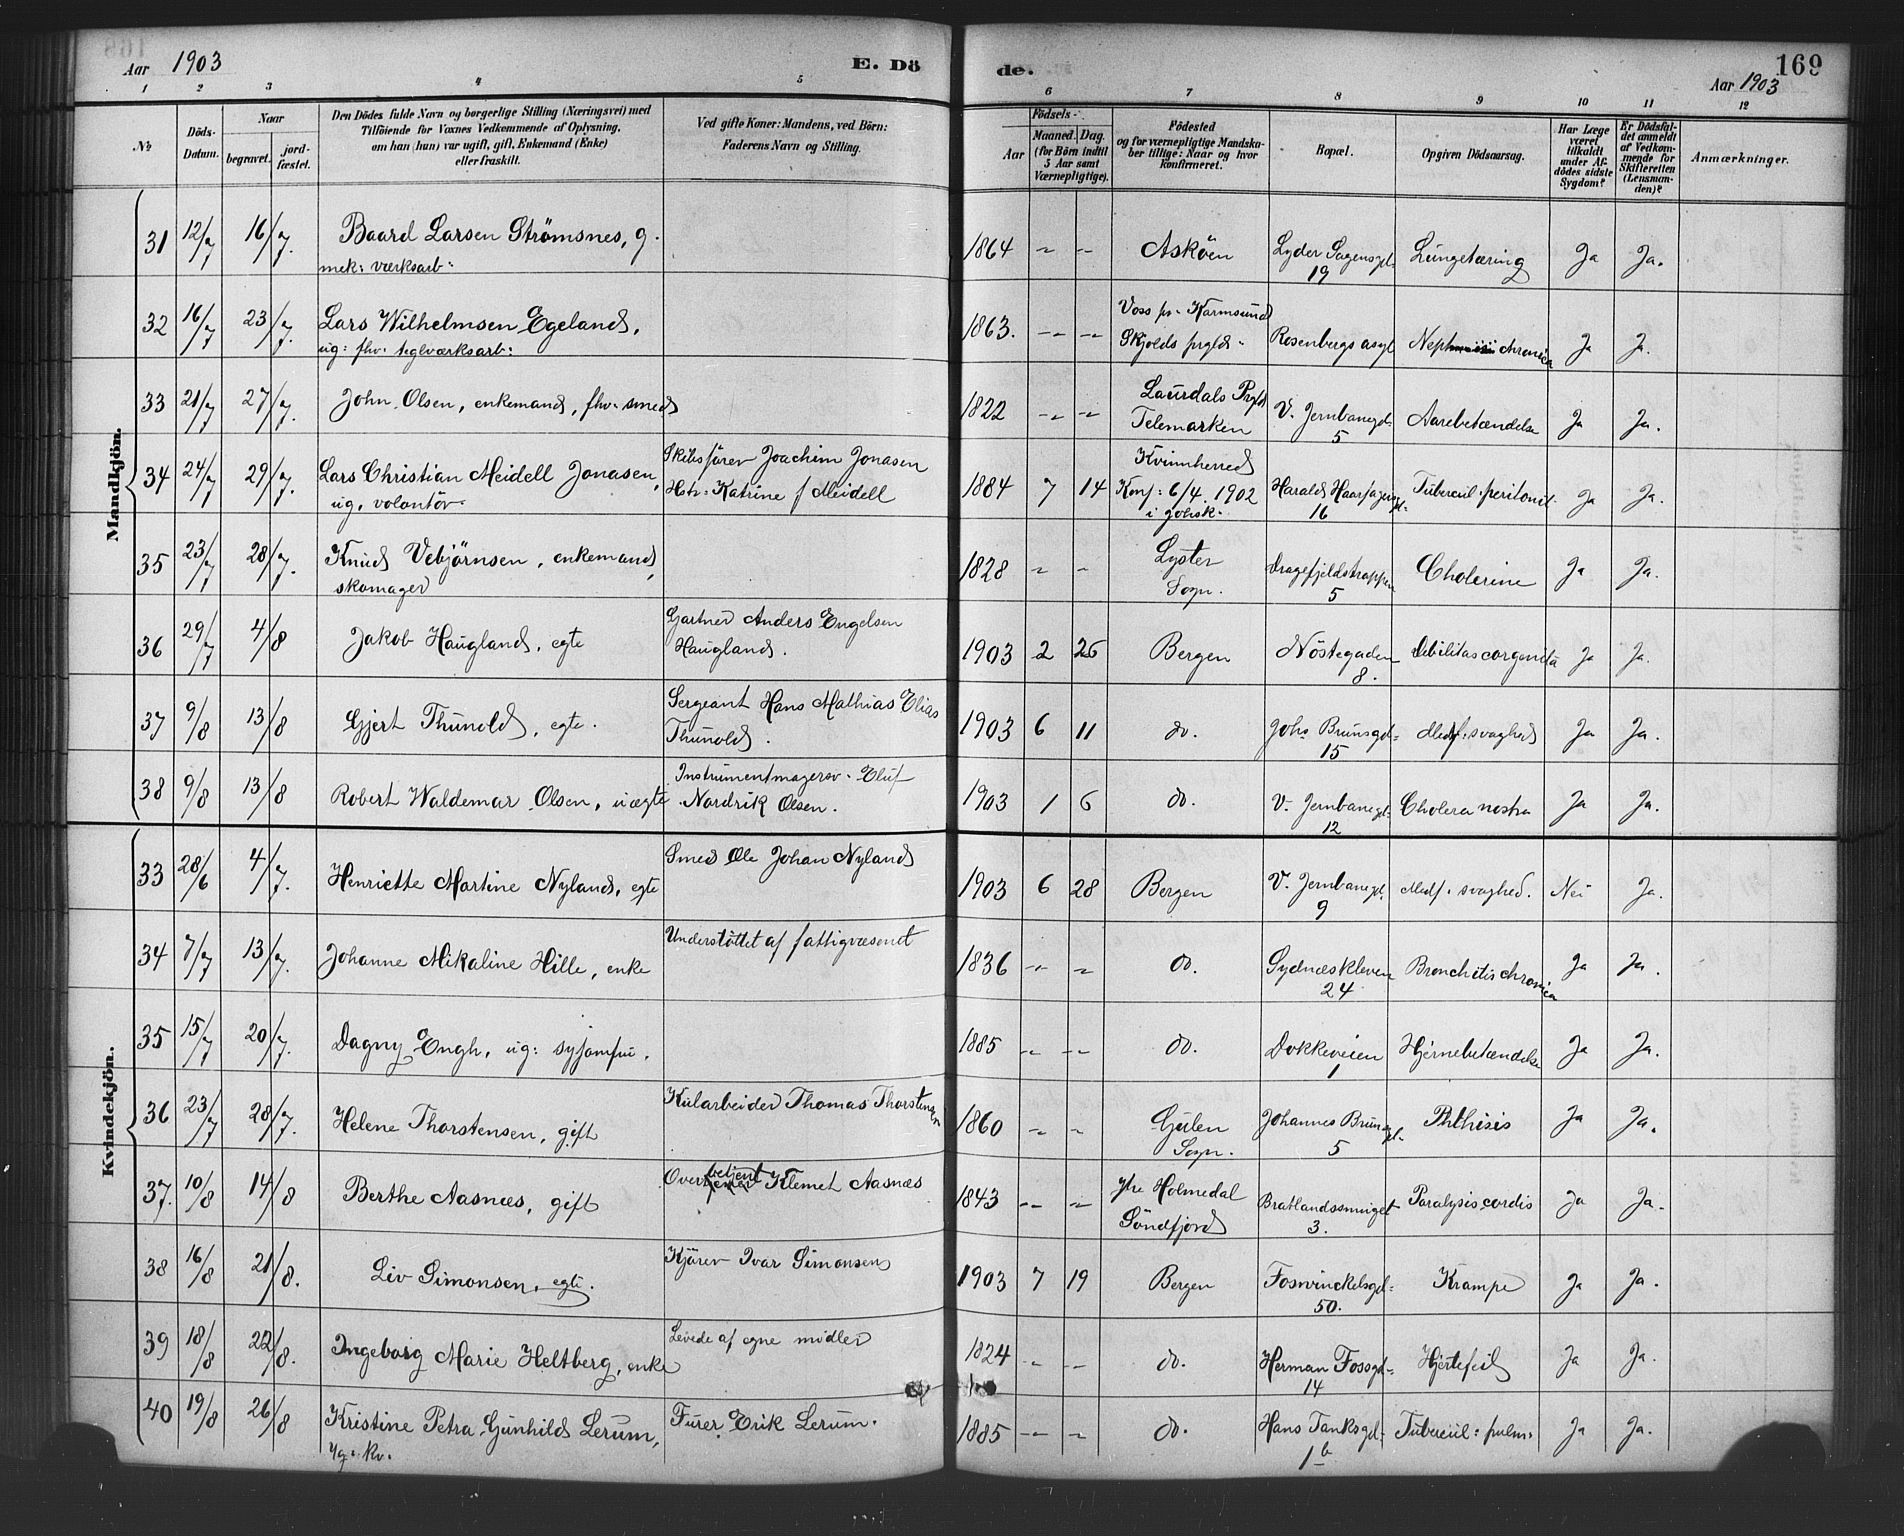 Aar 1903 E. Dö
de. 169
Aar 1903
1 2 3 4 5
6 7 8 9 10 11 12
№ Döds-Datum. Naar begravet. jordfæstet. Den Dödes fulde Navn og borgerlige Stilling (Næringsvei) med Tilföiende for Voxnes Vedkommende af Oplysning, om han (hun) var ugift, gift, Enkemand (Enke) eller fraskilt. Ved gifte Koner: Mandens, ved Börn: Faderens Navn og Stilling.
Födsels- Aar Maaned. Dag. (for Börn indtil 5 Aar samt Værnepligtige). Födested og for værnepligtige Mandskaber tillige: Naar og hvor konfirmeret. Bopæl. Opgiven Dödsaarsag. Har Læge været tilkaldt under Afdödes sidste Sygdom? Er Dödsfaldet anmeldt af Vedkommende for Skifteretten (Lensmanden)? Anmærkninger.
Mandkjön.
31 12/7 16/7. Baard Larsen Strömsnes, g. mek: værksarb: 1864 -- -- Asköen Lyder Sagensgd. 19 Lungetæring Ja Ja.
32 16/7 23/7. Lars Wilhelmsen Egeland, ug: fhv. teglværksarb: 1863. -- -- Voss pr. Karmsund Skjolds prgld. Rosenbergs asyl chronica Ja Ja.
33 21/7 27/7. John Olsen, enkemand, fhv. smed 1822 -- -- Laurdals Prgld Telemarken V. Jernbanegd. 5 Aarebetændelse Ja Ja.
34 24/7 29/7. Lars Christian Meidell Jonasen, ug. volontör. Skibsförer Joachim Jonasen Hstr: Katrine f Meidell 1884 7 14 Kvinnherred Konf: 6/4. 1902 i Johsk. Harald Haarfagersgd. 16 Tubercul. peritonit. Ja Ja.
35 23/7 28/7. Knud Vebjörnsen, enkemand, skomager 1828 - - Lyster Sogn. Dragefjeldstrappen 5 Cholerine Ja Ja.
36 29/7 4/8 Jakob Haugland, egte Gartner Anders Engelsen Haugland. 1903 2 26 Bergen Nöstegaden 8. Debilitas congenita Ja Ja.
37 9/8 13/8 Gjert Thunold, egte. Sergeant Hans Mathias Elias Thunold. 1903 6 11 do. Johs Brunsgd. 15 Medf. svaghed Ja Ja.
38 9/8 13/8 Robert Waldemar Olsen, uægte Instrumentmagersv. Eluf Nordrik Olsen. 1903 1 6 do. V. Jernbanegd. 12 Cholera nostra Ja Ja.
Kvindekjön.
33 28/6 4/7. Henriette Martine Nyland, egte Smed Ole Johan Nyland 1903 6 28 Bergen V. Jernbanegd. 9 Medf. svaghed. Nei Ja.
34 7/7 13/7. Johanne Mikaline Hille, enke Understöttet af fattigvæsenet 1836 -- -- do. Sydnæskleven 24 Bronchitis chronica Ja Ja.
35 15/7 20/7. Dagny Engh, ug: syjomfru. 1885 -- -- do. Dokkeveien 1 Hjernebetændelse Ja Ja.
36 23/7 28/7. Helene Thorstensen, gift Kularbeider Thomas Thorstensen 1860 -- -- Gulen Sogn. Johannes Brunsgd. 5 Phthisis Ja Ja.
37. 10/8 14/8 Berthe Aasnæs, gift Overbetjent Klemet Aasnæs 1843 -- -- ytre Holmedal Söndfjord Bratlandssmuget 3. Paralysis cordis Ja Ja.
38 16/8 21/8. Liv Simonsen, egte. Kjörer Ivar Simonsen 1903 7 19 Bergen Fosswinckelsgd. 50. Krampe Ja Ja.
39 18/8 22/8. Ingeborg Marie Heltberg, enke Levede af egne midler 1824 -- -- do. Herman Fossgd. 14 Hjertefeil Ja Ja.
40 19/8 26/8 Kristine Petra Gunhild Lerum, ug. kv. Furer Erik Lerum. 1885 -- -- do. Hans Tanksgd. 1 b Tubercul: pulm. Ja Ja.